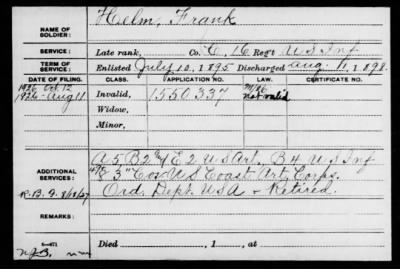 NAME OF SOLDIER: Helm, Frank
SERVICE: Late rank, Co. E, 16 Reg't U S Inf
TERM OF SERVICE: Enlisted July 12, 1895 Discharged Aug. 11, 1898.
DATE OF FILING. CLASS. APPLICATION NO. LAW. CERTIFICATE NO.
1926 Oct. 12
1926 Aug 11 Invalid, 1550337 not valid
Widow,
Minor,
ADDITIONAL SERVICES: A 5 B 2 & E 2 U S Art, B 4 U S Inf
& 3" Co. U S Coast Art. Corps.
Ord. Dept. U S A & Retired.
REMARKS:
Died , 1 , at